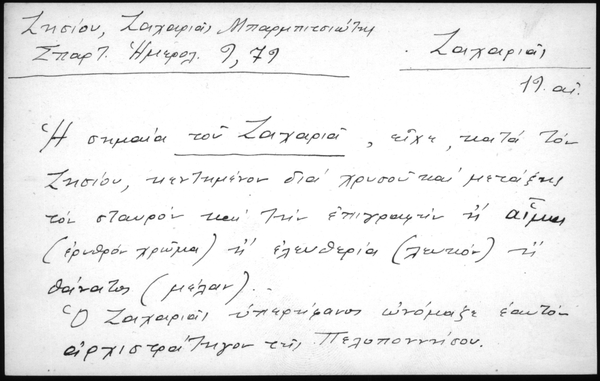 Ζησίου, Ζαχαριᾶς Μπαρμπιτσιώτης
Σπαρτ. Ἡμερολ. 9, 79
Ζαχαριᾶς
19. αἰ.
Ἡ σημαία τοῦ Ζαχαριᾶ, εἶχε, κατά τόν
Ζησίου, κεντημένον διά χρυσοῦ καί μετάξης
τόν σταυρόν καί τήν ἐπιγραφήν ἤ αἷμα
(ἐρυθρόν χρῶμα) ἤ ἐλευθερία (λευκόν) ἤ
θάνατος (μέλαν)..
Ὁ Ζαχαριᾶς ὑπερήφανος ὠνόμαζε ἑαυτόν
ἀρχιστράτηγον τῆς Πελοποννήσου.